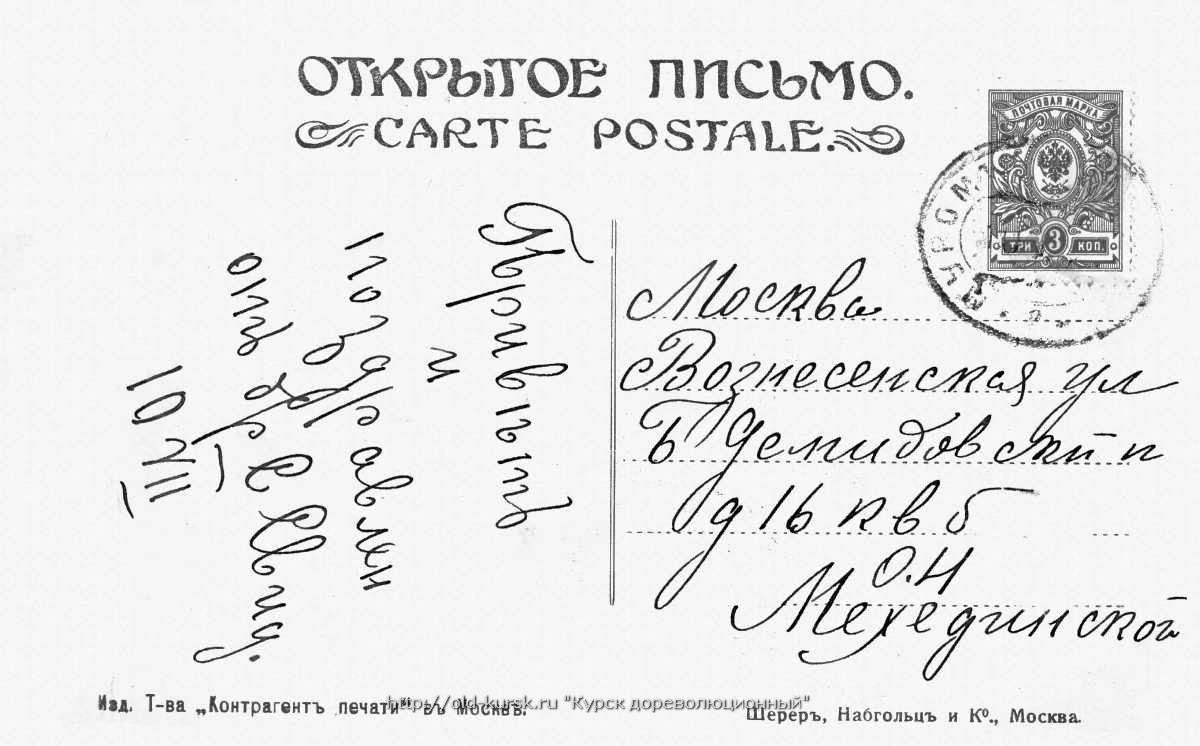 ОТКРЫТОЕ ПИСЬМО.
CARTE POSTALE.
ПОЧТОВАЯ МАРКА
ТРИ 3 КОП.
Привѣтъ
и
поздравлен
отъ
10 VIII
Москва
Вознесенская ул
Б Демидовскій п
д 16 кв 6
О. Н
Мехединской
Изд. Т-ва „Контрагентъ печати" въ Москвѣ.
http://old-kursk.ru "Курск дореволюционный"
Шереръ, Набгольцъ и Ко., Москва.